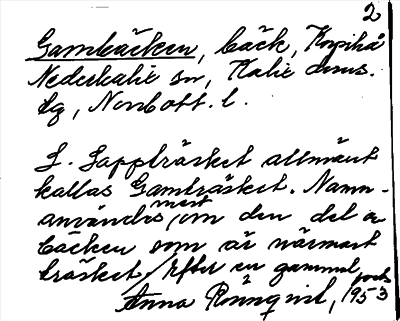 2
Gambäcken, bäck, Kypihå
Nederkalix sn, Kalix doms.
tg, Norrbott. l.
L. Lappträsket allmänt
kallas Gamträsket. Namn-
användes mest om den del a
bäcken som är närmast
träsket. Efter en gammal
Anna Rönnqvist, 1953